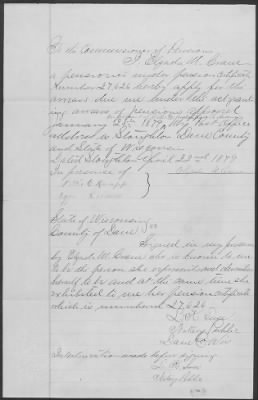 To the Commissioner of Pensions
I,
a pensioner under pension certificate
number 27,626 hereby apply for the
arrears due me under the act grant
ing arrears of pensions approved
January 25th 1879. My Post Office
address is Stoughton Dane County
and State of Wisconsin
Dated Stoughton April 22nd 1879
In presence of
State of Wisconsin
County of Dane
Signed in my presence
by who is known to me
to be the person she represents and
herself to be and at the same time she
exhibited to me her pension certificate
which is numbered 27,626
Notary Public
Dane Co Wis
Interlineation made before signing
Notary Public